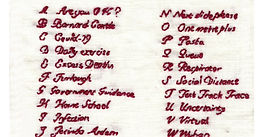 A Are you OK?
B Barnard Castle
C Covid-19
D Daily exercise
E Excess Deaths
F Furlough
G Government Guidance
H Home School
I Infection
J Jacinda Ardern
N Next slide please
O One metre plus
P Pasta
Q Queue
R Respirator
S Social Distance
T Test Track Trace
U Uncertainty
V Virtual
W Wuhan